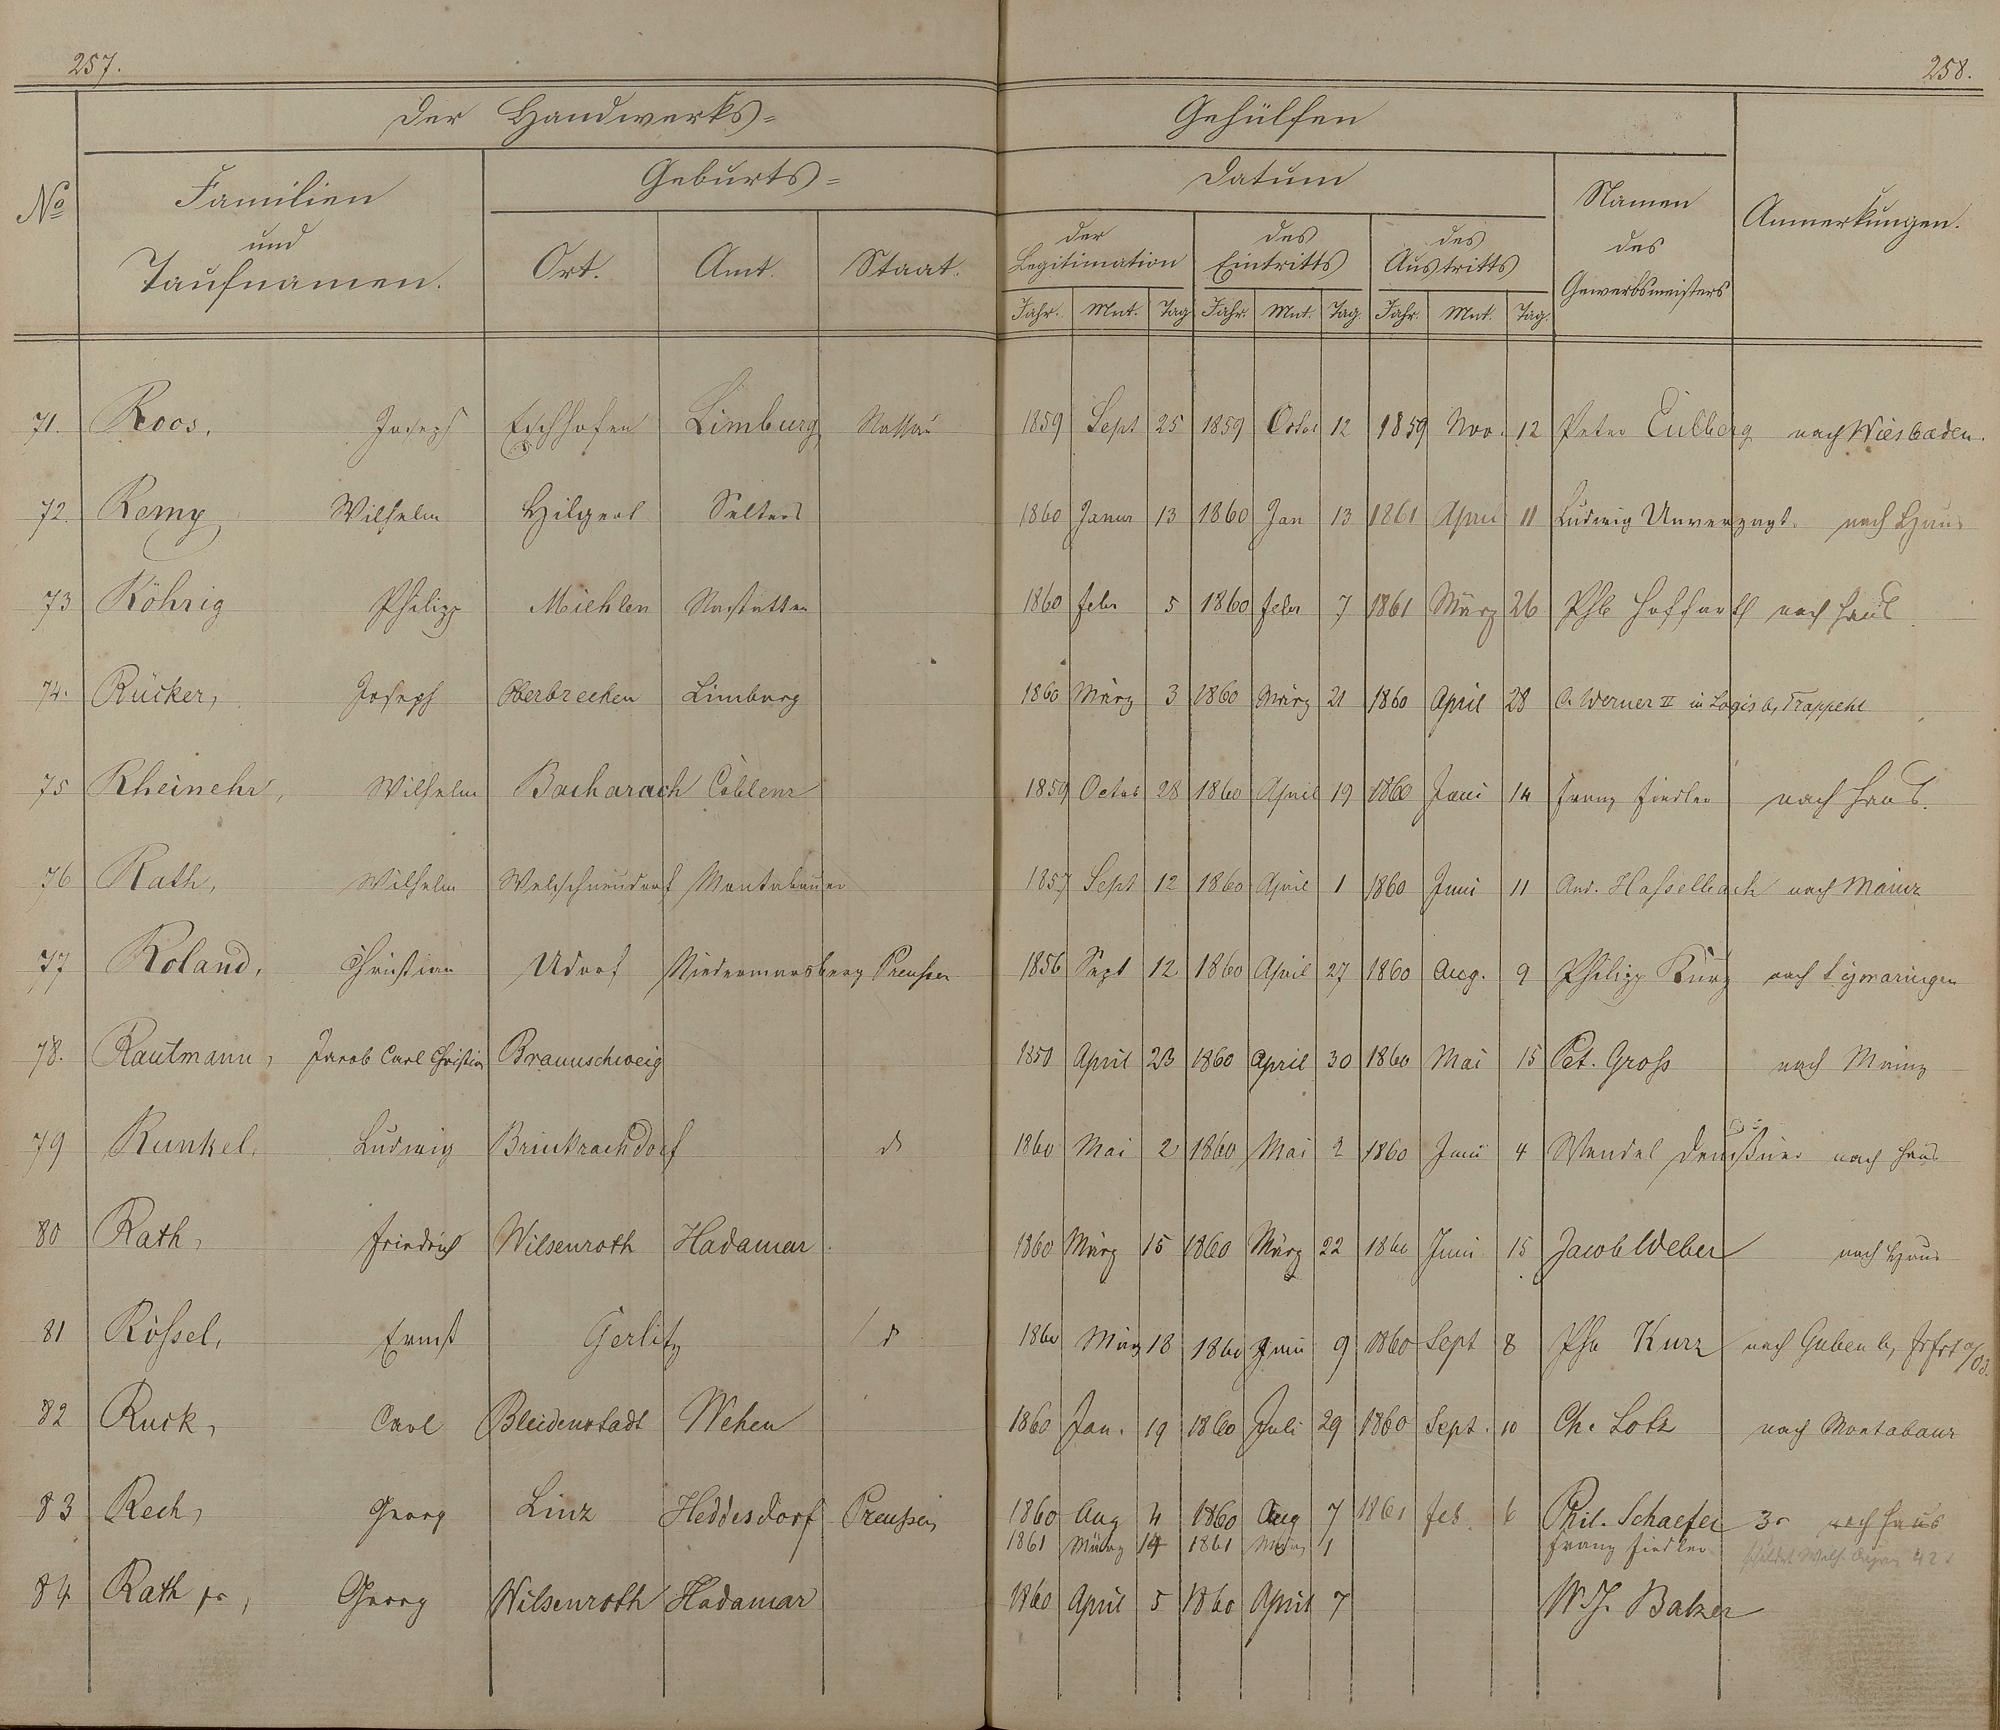 257.
258.
Der Handwerks= Gehülfen
No
Familien
und
Taufnamen.
Geburts=
Ort. Amt. Staat.
Datum
der
Legitimation
des
Eintritts
des
Austritts
Jahr. Mnt. Tag Jahr. Mnt. Tag. Jahr. Mnt. Tag.
Namen
des
Gewerbsmeisters
Anmerkungen.
71. Roos, Joseph Eschhofen Limburg Nassau 1859 Sept 25 1859 Octor 12 1859 Nov. 12 Peter Eulberg nach Wiesbaden.
72. Remy Wilhelm Hilgert Selters 1860 Janur 13 1860 Jan 13 1861 April 11 Ludwig Unverzagt. nach Haus
73 Röhrig Philipp Miehlen Nastätten 1860 Febr 5 1860 Febr 7 1861 März 26 Phb Hoffarth nach Haus
74. Rücker, Joseph Oberbrechen Limburg 1860 März 3 1860 März 21 1860 April 28 A. Werner II in Logis b, Trappehl
75 Rheinehr, Wilhelm Bacharach Coblenz 1859 Octob 28 1860 April 19 1860 Juni 14 Franz Fiedler nach Haus.
76 Rath, Wilhelm Welschneudorf Montabauer 1857 Sept 12 1860 April 1 1860 Juni 11 And. Hasselbach nach Mainz
77 Roland, Christian Udorf Niedermarsberg Preußen 1856 Sept 12 1860 April 27 1860 Aug. 9 Philipp Kurz nach Sigmaringen
78. Rautmann, Jacob Carl Christian Braunschweig 1850 April 23 1860 April 30 1860 Mai 15 Pet. Groß nach Mainz
79 Runkel, Ludwig Brückrachdorf d 1860 Mai 2 1860 Mai 2 1860 Juni 4 Wendel nach Haus
80 Rath, Friedrich Wilsenroth Hadamar 1860 März 15 1860 März 22 1860 Juni 15 Jacob Weber nach Haus
81 Rössel, Ernst Gerlitz d 1860 März 18 1860 Juni 9 1860 Sept 8 Phb Kurz nach Guben b, Frfrt a/Od.
82 Ruck, Carl Bleidenstadt Wehen 1860 Jan. 19 1860 Juli 29 1860 Sept. 10 Ch. Lotz nach Montabaur
83 Rech, Georg Linz Heddesdorf Preußen 1860 Aug 4 1860 Aug 7 1861 Feb. 6 Phil. Schaefer 3r nach Haus
1861 März 14 1861 März 1 Franz Fiedler
84 Rath jr, Georg Wilsenroth Hadamar 1860 April 5 1860 April 7 Wh. Balzer